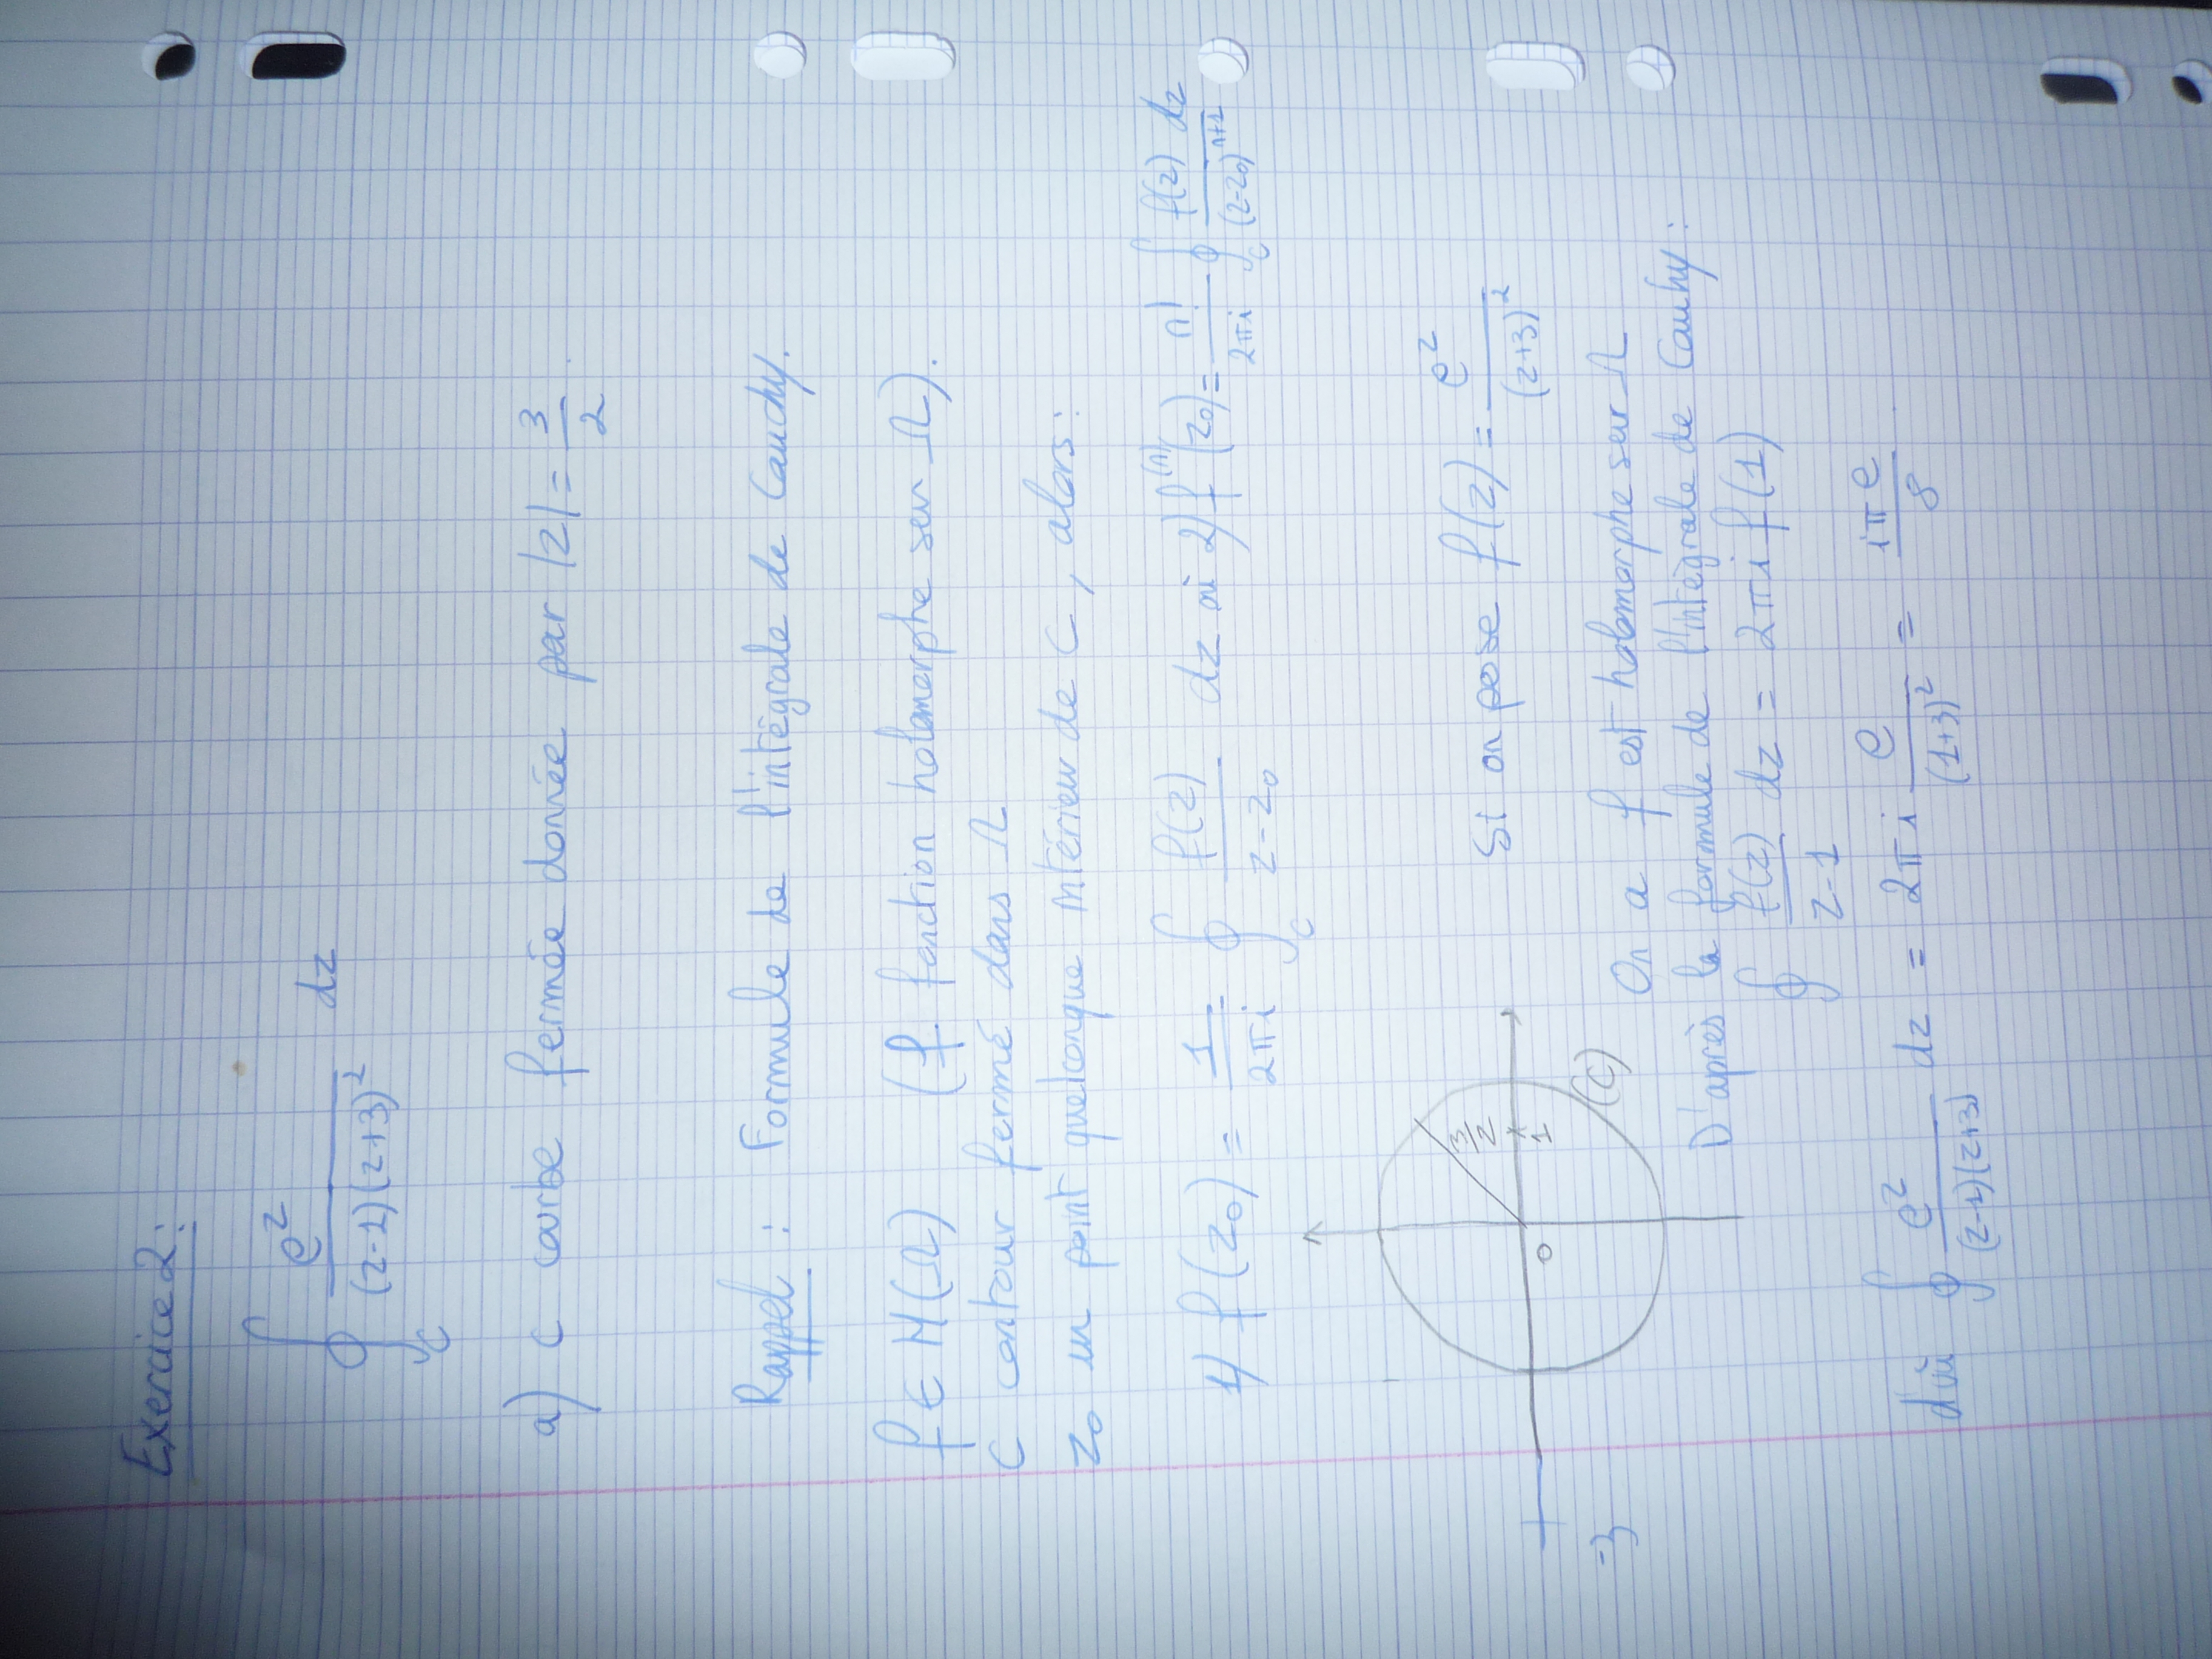 Exercice 2:
∮_C e^z / (z-1)(z+3)^2 dz
a) C courbe fermée donnée par |z| = 3/2.
Rappel : Formule de l'intégrale de Cauchy.
f ∈ H(Ω) (f fonction holomorphe sur Ω).
C contour fermé dans Ω
z_0 un point quelconque intérieur de C, alors :
1) f(z_0) = 1/2πi ∮_C f(z)/z-z_0 dz où 2) f^(n)(z_0) = n!/2πi ∮_C f(z)/(z-z_0)^n+1 dz
Si on pose f(z) = e^z/(z+3)^2
3/2
1
0
-3
(C)
On a f est holomorphe sur Ω
D'après la formule de l'intégrale de Cauhy :
∮ f(z)/z-1 dz = 2πi f(1)
d'où ∮ e^z/(z-1)(z+3) dz = 2πi e/(1+3)^2 = iπe/8.